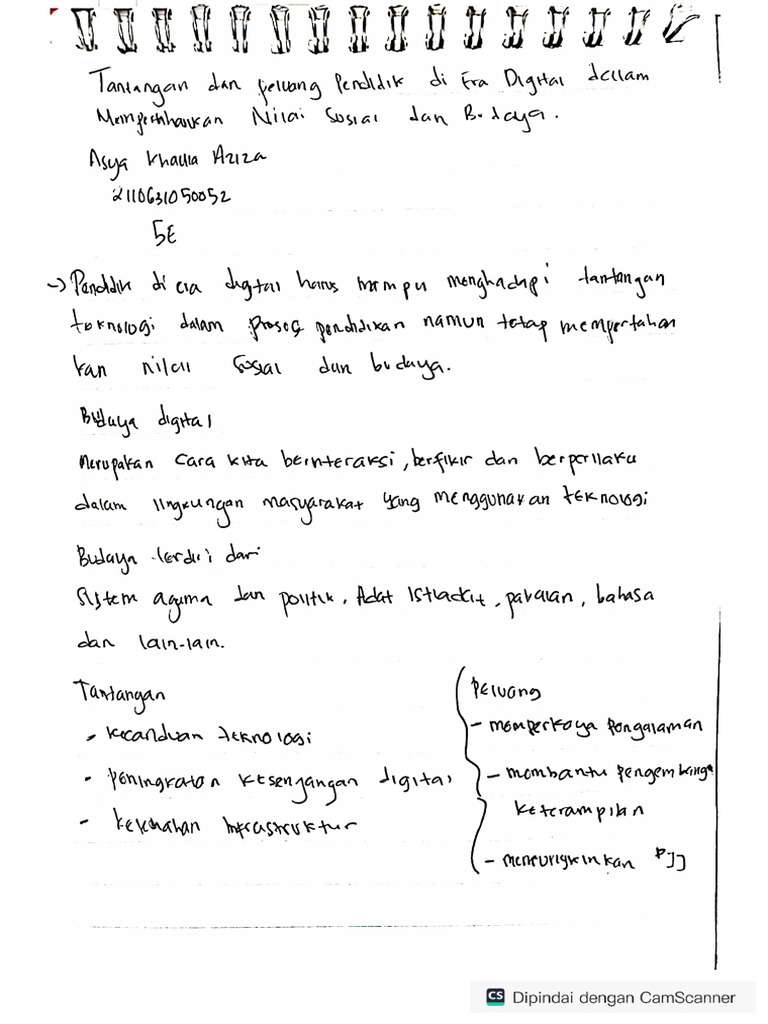 Tantangan dan peluang Pendidik di Era Digital dalam
Mempertahankan Nilai Sosial dan Budaya.
Asya Khalila Aziza
2110631050052
5E
→ Pendidik di era digital harus mampu menghadapi tantangan
teknologi dalam proses pendidikan namun tetap mempertahan
kan nilai sosial dan budaya.
Budaya digital
Merupakan cara kita berinteraksi, berfikir dan berperilaku
dalam lingkungan masyarakat yang menggunakan teknologi
Budaya terdiri dari
Sistem agama dan politik, Adat istiadat, pakaian, bahasa
dan lain-lain.
Tantangan
- kecanduan teknologi
- peningkatan kesenjangan digital
- kelemahan infrastruktur
Peluang
- memperkaya pengalaman
- membantu pengembanga
keterampilan
- memungkinkan PJJ
CS Dipindai dengan CamScanner